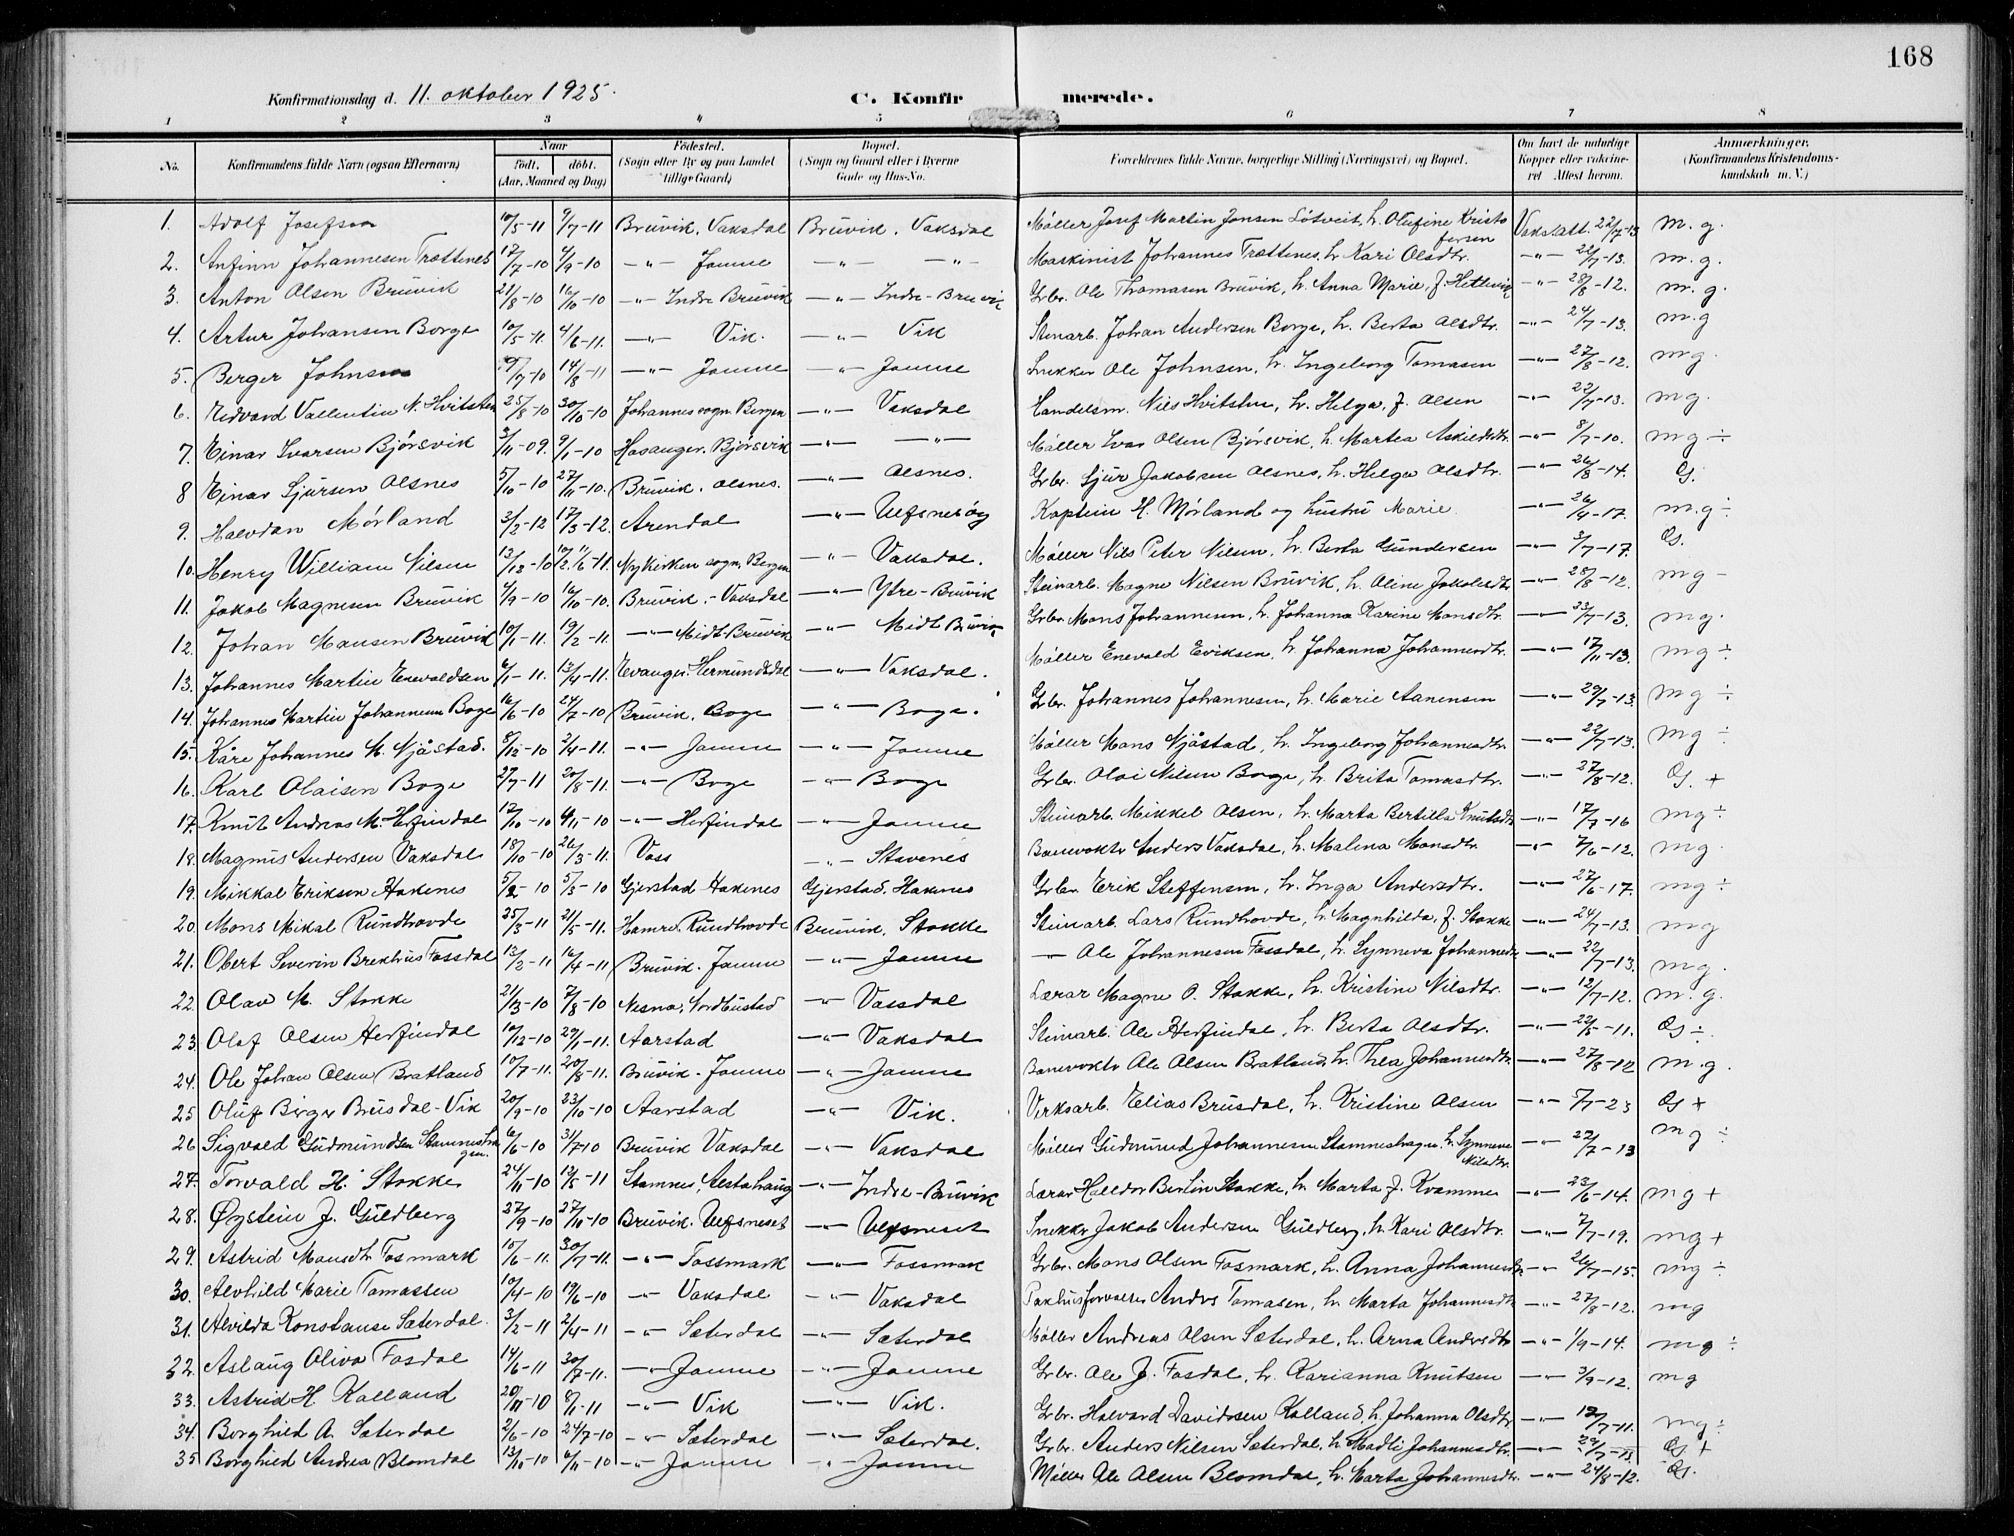 168
Konfirmationsdag d. 11. oktober 1925.
C. Konfirmerede.
1 2 3 4 5 6 7 8
No. Konfirmandens fulde Navn (ogsaa Efternavn) Naar født. døbt. (Aar, Maaned og Dag) Fødested. (Sogn eller By og paa Landet tillige Gaard) Bopæl. (Sogn og Gaard eller i Byerne Gade og Hus-No. Forældrenes fulde Navne, borgerlige Stilling (Næringsvei) og Bopæl. Om havt de naturlige Kopper eller vaccineret Attest herom. Anmærkninger. (Konfirmandens Kristendomskundskab m. V.)
1. Adolf Josefson 10/5-11 9/7-11 Bruvik, Vaksdal Bruvik, Vaksdal Møller Josef Martin Jonsen Løtveit, h. Olufine Kristofersen Vaks.att. 22/7-13 m.g.
2. Anfinn Johannesen Trættenes 17/7-10 4/9-10 -"- Jamne -"- -"- Maskinist Johannes Trættenes, h. Kari Olsdtr. -"- 22/7-13. m.g.
3. Anton Olsen Bruvik 21/8-10 16/10-10 -"- Indre Bruvik -"- Indre-Bruvik Grbr. Ole Thomasen Bruvik, h. Anna Marie, f. Hettevik -"- 28/8-12. m.g.
4. Artur Johansen Borge 10/5-11. 4/6-11. -"- Vik. -"- Vik Steinarb. Johan Andersen Borge, h. Berta Olsdtr. -"- 24/7-13. m.g
5. Berger Johnsen 9/7-10 14/8-11 -"- Jamne -"- Jamne Snekker Ole Johnsen, h. Ingeborg Tomasen -"- 27/8-12. mg.
6. Edvard Vallentin N. Hvitsten 25/8-10 30/10-10 Johannes sogn, Bergen -"- Vaksdal Handelsm. Nils Hvitsten, h. Helga, f. Olsen -"- 22/7-13. mg.
7. Einar Ivarsen Bjørsvik 3/11-09. 9/1-10 Hosanger, Bjørsvik -"- -"- Møller Ivar Olsen Bjørsvik, h. Martea Askildsdtr. -"- 8/7-10. mg ÷
8 Einar Sjursen Olsnes 5/10-10 27/11-10. Bruvik, Olsnes. -"- Olsnes. Grbr. Sjur Jakobsen Olsnes, h. Helga Olsdtr. -"- 26/8-14. G.
9. Halvdan Mørland 3/2-12 17/3-12. Arendal -"- Ulfsnesøy Kaptein H. Mørland og hustru Marie. -"- 26/4-17. m.g ÷
10. Henry William Nilsen 13/12-10 11/6-11. Nykirken sogn, Bergen -"- Vaksdal. Møller Nils Peter Nilsen, h. Berta Gundersen -"- 3/7-17. G.
11. Jakob Magnesen Bruvik 4/9-10 16/10-10. Bruvik.-Vaksdal -"- Ytre-Bruvik Steinarb. Magne Nilsen Bruvik, h. Oline Jakobsdtr -"- 28/8-12. mg -
12. Johan Monsen Bruvik 10/1-11. 19/2-11. -"- Midt-Bruvik -"- Midt Bruvik Grbr. Mons Johannesen, h. Johanna Karine Monsdtr. -"- 23/7-13. mg.
13. Johannes Martin Enevoldsen 6/1-11. 17/4-11. Evanger. Hermundsdal -"- Vaksdal. Møller Enevald Eriksen, h. Johanna Johannesdtr. -"- 17/11-13. mg ÷
14. Johannes Martin Johannesen Boge 16/6-10 24/7-10 Bruvik, Boge -"- Boge. Grbr. Johannes Johannesen, h. Marie Aanensen -"- 29/7-13. mg ÷
15. Kåre Johannes M. Njåstad. 8/12-10 2/4-11. -"- Jamne -"- Jamne Møller Mons Njåstad, h. Ingeborg Johannesdtr. -"- 22/7-13. mg ÷
16. Karl Olaisen Boge 27/7-11 20/8-11. -"- Boge -"- Boge Grbr. Olai Nilsen Boge, h. Brita Tomasdtr. -"- 27/8-12. G. +
17. Knut Andreas M. Herfindal 17/10-10 4/11-10 -"- Herfindal -"- Jamne Steinarb. Mikkel Olsen, h. Marta Bertilla Knutsdtr -"- 17/7-16 mg ÷
18. Magnus Andersen Vaksdal 18/10-10 26/3-11. Voss -"- Stavenes Banevoktr Anders Vaksdal, h. Malena Monsdtr. -"- 7/6-12. mg
19. Mikkal Eriksen Hakenes 5/2-10 5/3-10 Gjerstad Hakenes Gjerstad, Hakenes Grbr. Erik Steffensen, h. Inga Andersdtr. -"- 27/6-17. mg ÷
20. Mons Mikal Rundhovde 25/3-11 21/5-11. Hamre, Rundhovde Bruvik, Stokke Steinarb. Lars Rundhovde, h. Magnhilda, f. Stokke -"- 24/7-13. mg
21. Obert Severin Brekhus Fossdal 13/2-11 16/4-11 Bruvik. Jamne -"- Jamne -"- Ole Johannesen Fossdal, h. Synneva Johannesdtr. -"- 22/7-13. mg.
22. Olav M. Stokke 21/3-10 7/8-10 Nesna, Nordhustad -"- Vassdal Lærar Magne O. Stokke, h. Kristine Nilsdtr. -"- 12/7-12. m.g.
23. Olaf Olsen Herfindal 10/12-10 29/1-11. Aarstad -"- Vaksdal Steinarb. Ole Herfindal, h. Berta Olsdtr. -"- 22/5-11. G ÷.
24. Ole Johan Olsen Bratland 10/7-11. 20/8-11. Bruvik-Jamne -"- Jamne Banevoktr Ole Olsen Bratland, h. Thea Johannesdtr. -"- 27/8-12 m.g.
25 Oluf Birger Brusdal-Vik 20/9-10 23/10-10 Aarstad -"- Vik. Verksarb. Elias Brusdal, h. Kristine Olsen -"- 5/7-23 G +
26 Sigvald Gudmundsen Stamneshagen. 6/6-10 31/7-10 Bruvik Vaksdal -"- Vaksdal Møller Gudmund Johannesen Stamneshagen, h. Synneve Nilsdtr. -"- 22/7-13 mg ÷
27. Torvald H. Stokke 24/11-10 12/5-11 Stamnes, Alstahaug -"- Indre-Bruvik Lærar Halldor Berlin Stokke, h. Marta f. Kvamme -"- 23/6-14. mg +
28. Øystein J. Guldberg 27/9-10 27/11-10 Bruvik. Ulfsneset -"- Ulfsneset Snekkr Jakob Andersen Guldberg, h. Kari Olsdtr. -"- 7/7-19. mg +
29. Astrid Monsdtr Fosmark 15/6-11. 30/7-11. -"- Fossmark -"- Fossmark Grbr. Mons Olsen Fosmark, h. Anna Johannesdtr. -"- 26/7-15. mg ÷
30. Alvhild Marie Tomassen 10/4-10 19/6-10 -"- Vaksdal -"- Vaksdal Pakhusforvalter Andrs Tomasen, h. Marta Johannesdtr -"- 27/8-12. mg
31. Alvilda Konstanse Sæterdal. 3/2-11 2/4-11 -"- Sæterdal -"- Sæterdal Møller Andreas Olsen Sæterdal, h. Arna Andersdtr -"- 1/9-14. mg ÷
32. Aslaug Oliva Fosdal 14/6-11 30/7-11. -"- Jamne -"- Jamne Grbr. Ole J. Fosdal, h. Karianna Knutsen -"- 3/9-12. mg
33. Astrid H Kalland 20/11-10 8/1-11 -"- Vik -"- Vik. Grbr. Halvard Davidssen Kalland, h. Johanna Olsdtr -"- 12/7-11. mg ÷
34. Borghild A. Sæterdal 2/6-10 24/7-10 -"- Sæterdal -"- Sæterdal. Grbr. Anders Nilsen Sæterdal, h. Madli Johannesdtr. -"- 22/7-13 G +
35 Borghild Andrea Blomdal 13/10-10 6/11-10 -"- Jamne -"- Jamne Møller Ole Olsen Blomdal, h. Marta Johannesdtr. -"- 24/8-12. G.